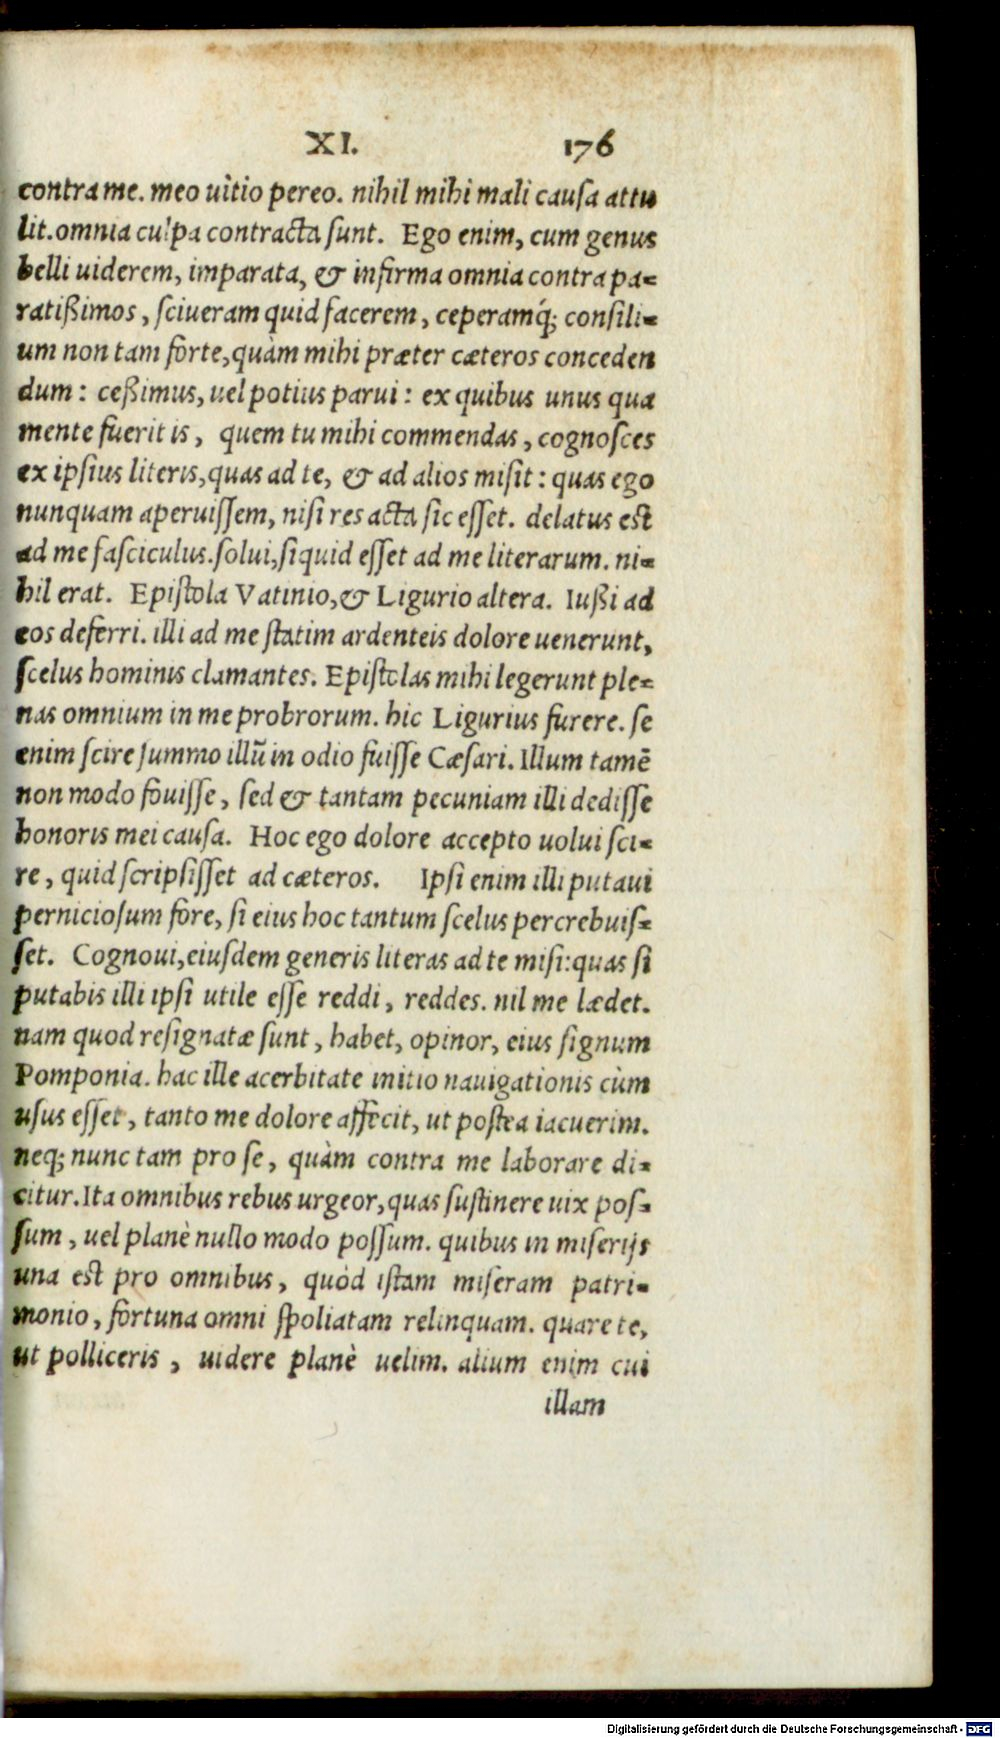 XI. 176
contra me. meo uitio pereo. nihil mihi mali causa attu
lit. omnia culpa contracta sunt. Ego enim, cum genus
belli uiderem, imparata, & infirma omnia contra pa-
ratißimos, sciueram quid facerem, ceperamq́; consili-
um non tam forte, quàm mihi præter cæteros conceden
dum: ceßimus, uel potius parui: ex quibus unus qua
mente fuerit is, quem tu mihi commendas, cognosces
ex ipsius literis, quas ad te, & ad alios misit: quas ego
nunquam aperuissem, nisi res acta sic esset. delatus est
ad me fasciculus. solui, siquid esset ad me literarum. ni-
hil erat. Epistola Vatinio, & Ligurio altera. Iußi ad
eos deferri. illi ad me statim ardenteis dolore uenerunt,
scelus hominis clamantes. Epistolas mihi legerunt ple-
nas omnium in me probrorum. hic Ligurius furere. se
enim scire summo illũ in odio fuisse Cæsari. Illum tamē
non modo fouisse, sed & tantam pecuniam illi dedisse
honoris mei causa. Hoc ego dolore accepto uolui sci-
re, quid scripsisset ad cæteros. Ipsi enim illi putaui
perniciosum fore, si eius hoc tantum scelus percrebuis-
set. Cognoui, eiusdem generis literas ad te misi: quas si
putabis illi ipsi utile esse reddi, reddes. nil me lædet.
nam quod resignatæ sunt, habet, opinor, eius signum
Pomponia. hac ille acerbitate initio nauigationis cùm
usus esset, tanto me dolore affecit, ut postea iacuerim.
neq; nunc tam pro se, quàm contra me laborare di-
citur. Ita omnibus rebus urgeor, quas sustinere uix pos-
sum, uel planè nullo modo possum. quibus in miserijs
una est pro omnibus, quòd istam miseram patri-
monio, fortuna omni spoliatam relinquam. quare te,
ut polliceris, uidere planè uelim. alium enim cui
illam
Digitalisierung gefördert durch die Deutsche Forschungsgemeinschaft - DFG